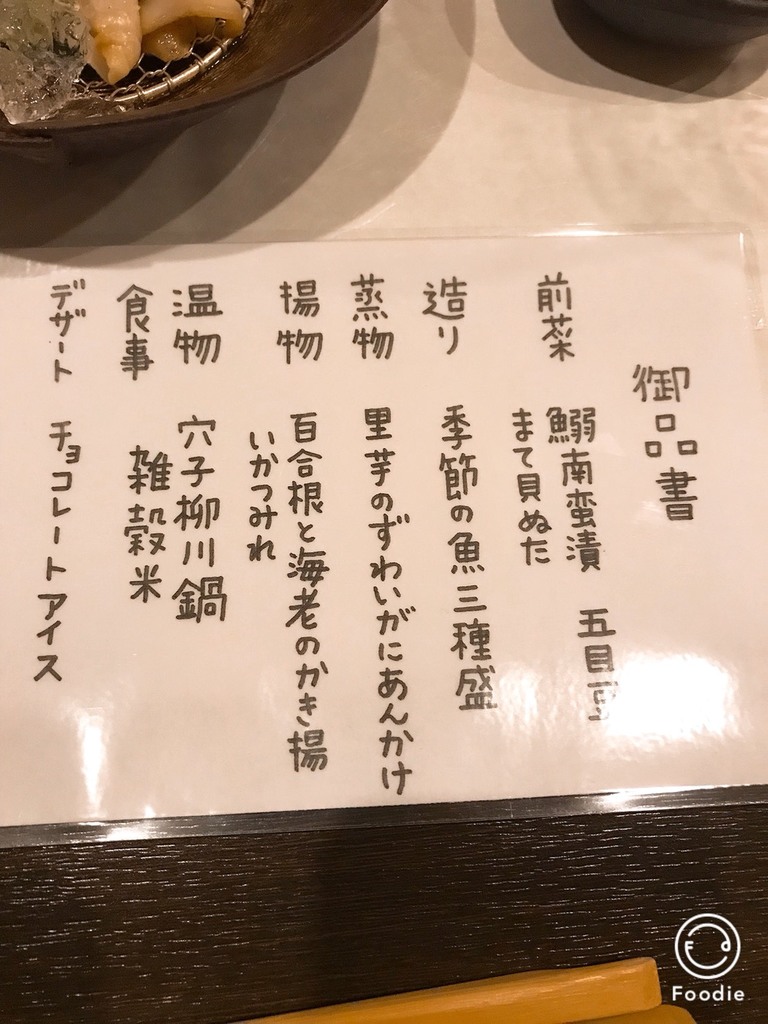 御品書
前菜 鰯南蛮漬 五目豆
まて貝ぬた
造り 季節の魚三種盛
蒸物 里芋のずわいがにあんかけ
揚物 百合根と海老のかき揚
いかつみれ
温物 穴子柳川鍋
食事 雑穀米
デザート チョコレートアイス
Foodie